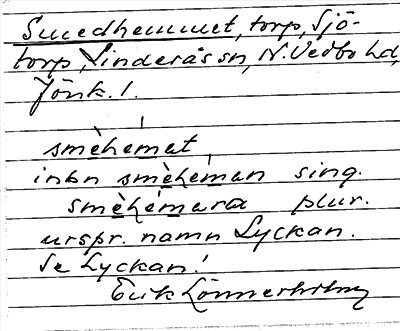 Smedhemmet, torp, Sjö-
torp, Linderås sn, N. Vedbo hd,
Jönk. l.
smèhémat
inbn smèhéman sing.
smèhémara plur.
urspr. namn Lyckan.
Se Lyckan!
Erik